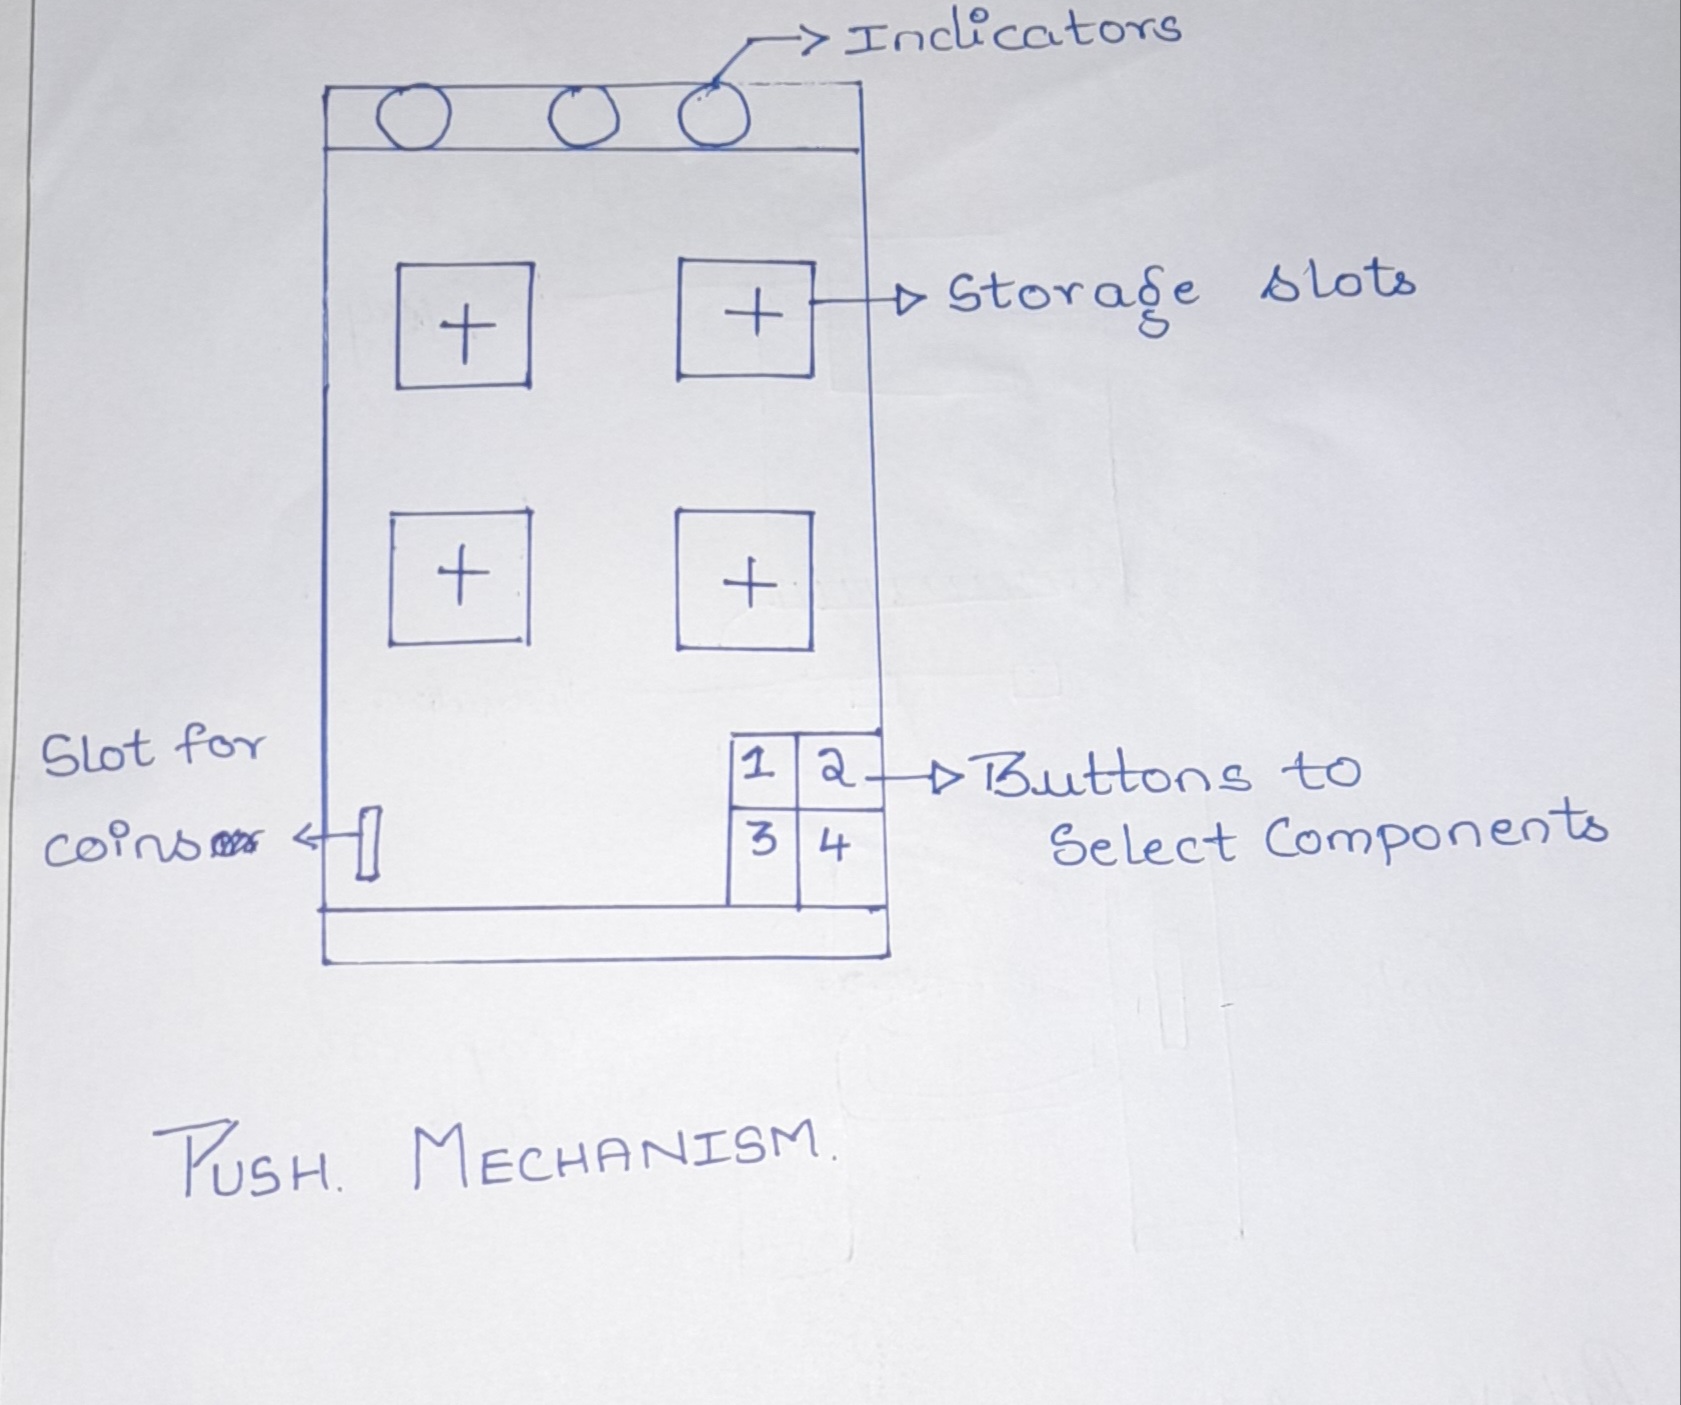 Indicators
+ +
Storage slots
+ +
Slot for
coins
1 2
3 4
Buttons to
Select Components
PUSH. MECHANISM.